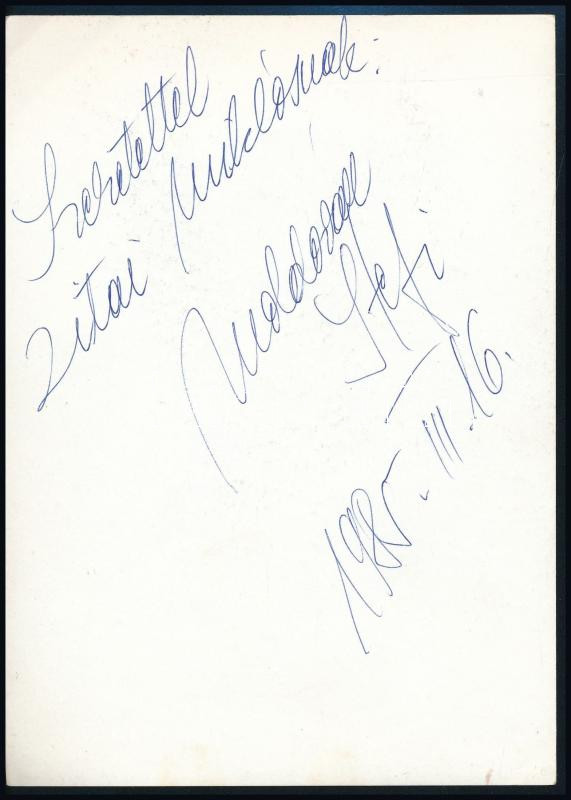 Szeretettel
Zitai Miklósnak:
Moldován
Stefi
1985. III. 16.